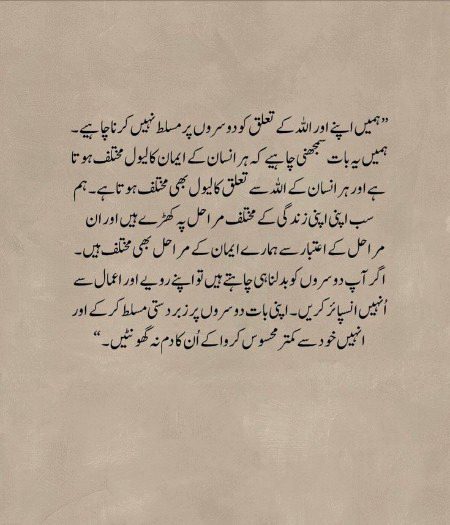 ”ہمیں اپنے اور اللہ کے تعلق کو دوسروں پر مسلط نہیں کرنا چاہیے۔
ہمیں یہ بات سمجھنی چاہیے کہ ہر انسان کے ایمان کا لیول مختلف ہوتا
ہے اور ہر انسان کے اللہ سے تعلق کا لیول بھی مختلف ہوتا ہے۔ ہم
سب اپنی اپنی زندگی کے مختلف مراحل پہ کھڑے ہیں اور ان
مراحل کے اعتبار سے ہمارے ایمان کے مراحل بھی مختلف ہیں۔
اگر آپ دوسروں کو بدلنا ہی چاہتے ہیں تو اپنے رویے اور اعمال سے
اُنہیں انسپائر کریں۔ اپنی بات دوسروں پر زبردستی مسلط کر کے اور
انہیں خود سے کمتر محسوس کروا کے اُن کا دم نہ گھونٹیں۔“